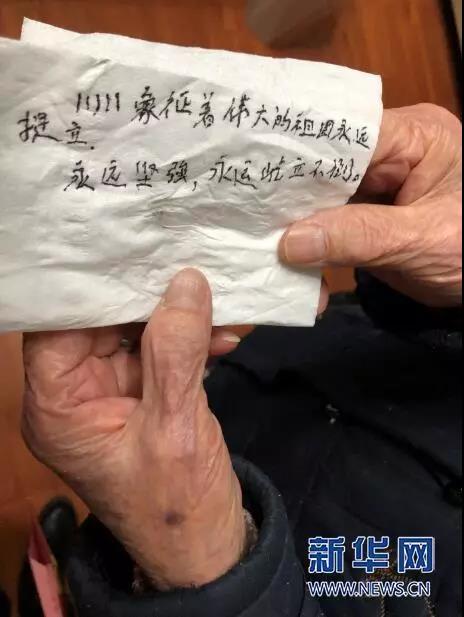 11111 象征着伟大的祖国永远
挺立.
永远坚強,永远屹立不倒。
新华网
WWW.NEWS.CN